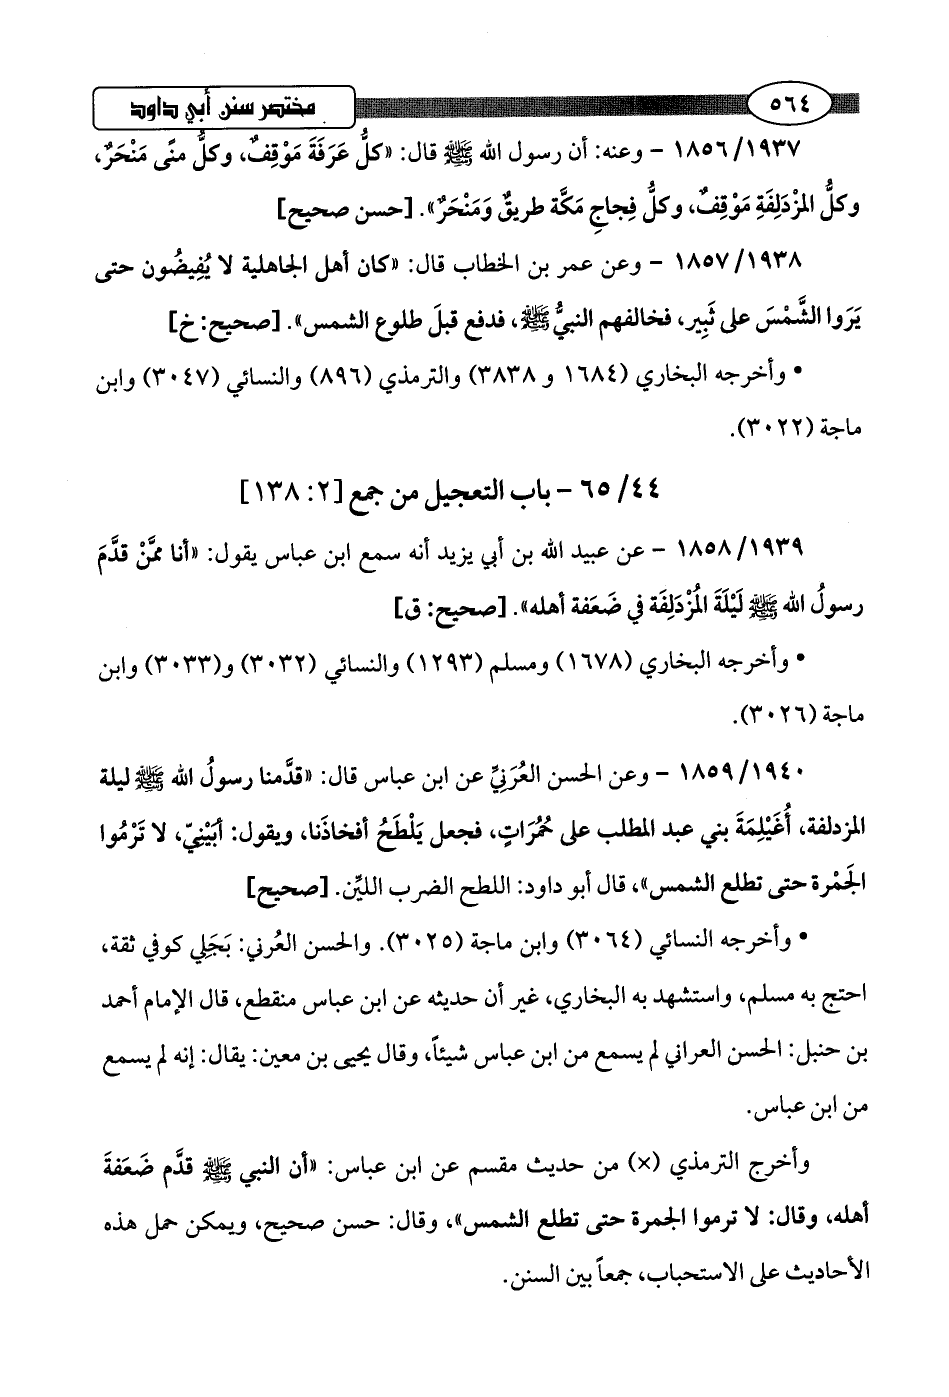 ٥٦٤
مختصر سنن أبي داود
١٨٥٦/١٩٣٧ - وعنه: أن رسول الله ﷺ قال: «كلُّ عَرَفَةَ مَوْقِفٌ، وكلُّ منًى مَنْحَرٌ،
وكلُّ المزْدَلِفَةِ مَوْقِفٌ، وكلُّ فِجاجِ مَكَّة طريقٌ وَمَنْحَرٌ». [حسن صحيح]
١٨٥٧/١٩٣٨ - وعن عمر بن الخطاب قال: «كان أهل الجاهلية لا يُفِيضُون حتى
يَرَوا الشَّمْسَ على ثَبِير، فخالفهم النبيُّ ﷺ، فدفع قبلَ طلوع الشمس». [صحيح: خ]
• وأخرجه البخاري (١٦٨٤ و ٣٨٣٨) والترمذي (٨٩٦) والنسائي (٣٠٤٧) وابن
ماجة (٣٠٢٢).
٦٥/٤٤ - باب التعجيل من جمع [٢: ١٣٨]
١٨٥٨/١٩٣٩ - عن عبيد الله بن أبي يزيد أنه سمع ابن عباس يقول: «أنا ممَّنْ قدَّمَ
رسولُ الله ﷺ لَيْلَةَ المُزْدَلِفَة في ضَعَفة أهله». [صحيح: ق]
• وأخرجه البخاري (١٦٧٨) ومسلم (١٢٩٣) والنسائي (٣٠٣٢) و(٣٠٣٣) وابن
ماجة (٣٠٢٦).
١٨٥٩/١٩٤٠ - وعن الحسن العُرَنِيِّ عن ابن عباس قال: «قدَّمنا رسولُ الله ﷺ ليلة
المزدلفة، أُغَيْلِمَةَ بني عبد المطلب على حُمُرَاتٍ، فجعل يَلْطَحُ أفخاذَنا، ويقول: أبَيْنِيّ، لا تَرْمُوا
الجَمْرة حتى تطلع الشمس»، قال أبو داود: اللطح الضرب الليِّن. [صحيح]
• وأخرجه النسائي (٣٠٦٤) وابن ماجة (٣٠٢٥). والحسن العُرني: بَجَلِي كوفي ثقة،
احتج به مسلم، واستشهد به البخاري، غير أن حديثه عن ابن عباس منقطع، قال الإمام أحمد
بن حنبل: الحسن العراني لم يسمع من ابن عباس شيئاً، وقال يحيى بن معين: يقال: إنه لم يسمع
من ابن عباس.
وأخرج الترمذي (×) من حديث مقسم عن ابن عباس: «أن النبي ﷺ قدَّم ضَعَفةَ
أهله، وقال: لا ترموا الجمرة حتى تطلع الشمس»، وقال: حسن صحيح، ويمكن حمل هذه
الأحاديث على الاستحباب، جمعاً بين السنن.